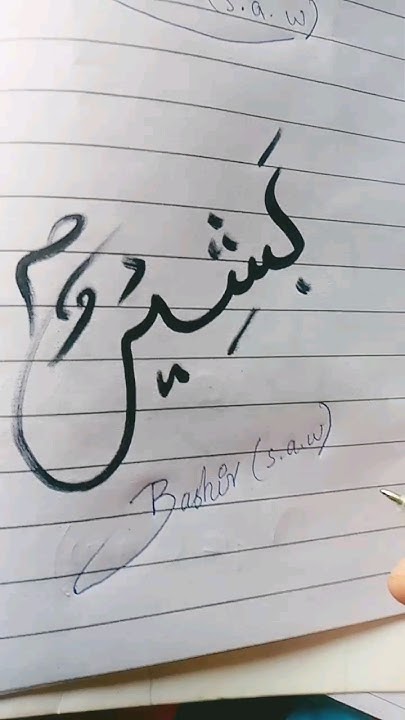 (s.a.w)
بَشِير
Bashir (s.a.w)